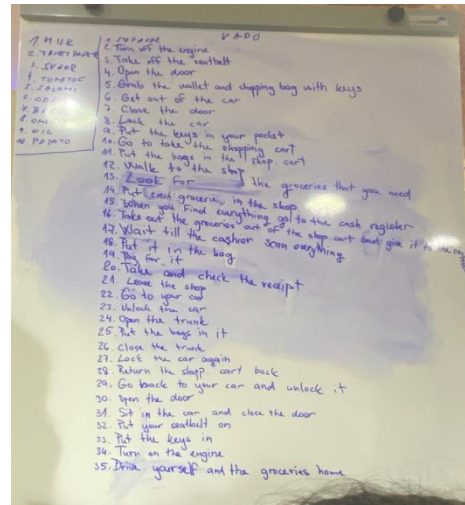 VADO
1. MILK
2. TOILET PAPER
3. SUGAR
4. TOMATOE
5. SALAMI
9. OIL
10. POTATO
2. Turn off the engine
3. Take off the seatbelt
4. Open the door
5. Grab the wallet and shopping bag with keys
6. Get out of the car
7. Close the door
8. Lock the car
9. Put the keys in your pocket
10. Go to take the shopping cart
11. Put the bags in the shop. cart
12. Walk to the shop
13. Look for the groceries that you need
14. Put each grocerie in the shop
15. When you find eurything go to the cash register
16. Take out the groceries out of the shop. cart and give it to the
17. Wait till the cashier scan everything
18. Put it in the bag
19. Pay for it
20. Take and check the receipt
21. Leave the shop
22. Go to your car
23. Unlock the car
24. Open the trunk
25. Put the bags in it
26. Close the trunk
27. Lock the car again
28. Return the shopp. cart back
29. Go back to your car and unlock it
30. Open the door
31. Sit in the car and close the door
32. Put your seatbelt on
33. Put the keys in
34. Turn on the engine
35. Drive yourself and the groceries home